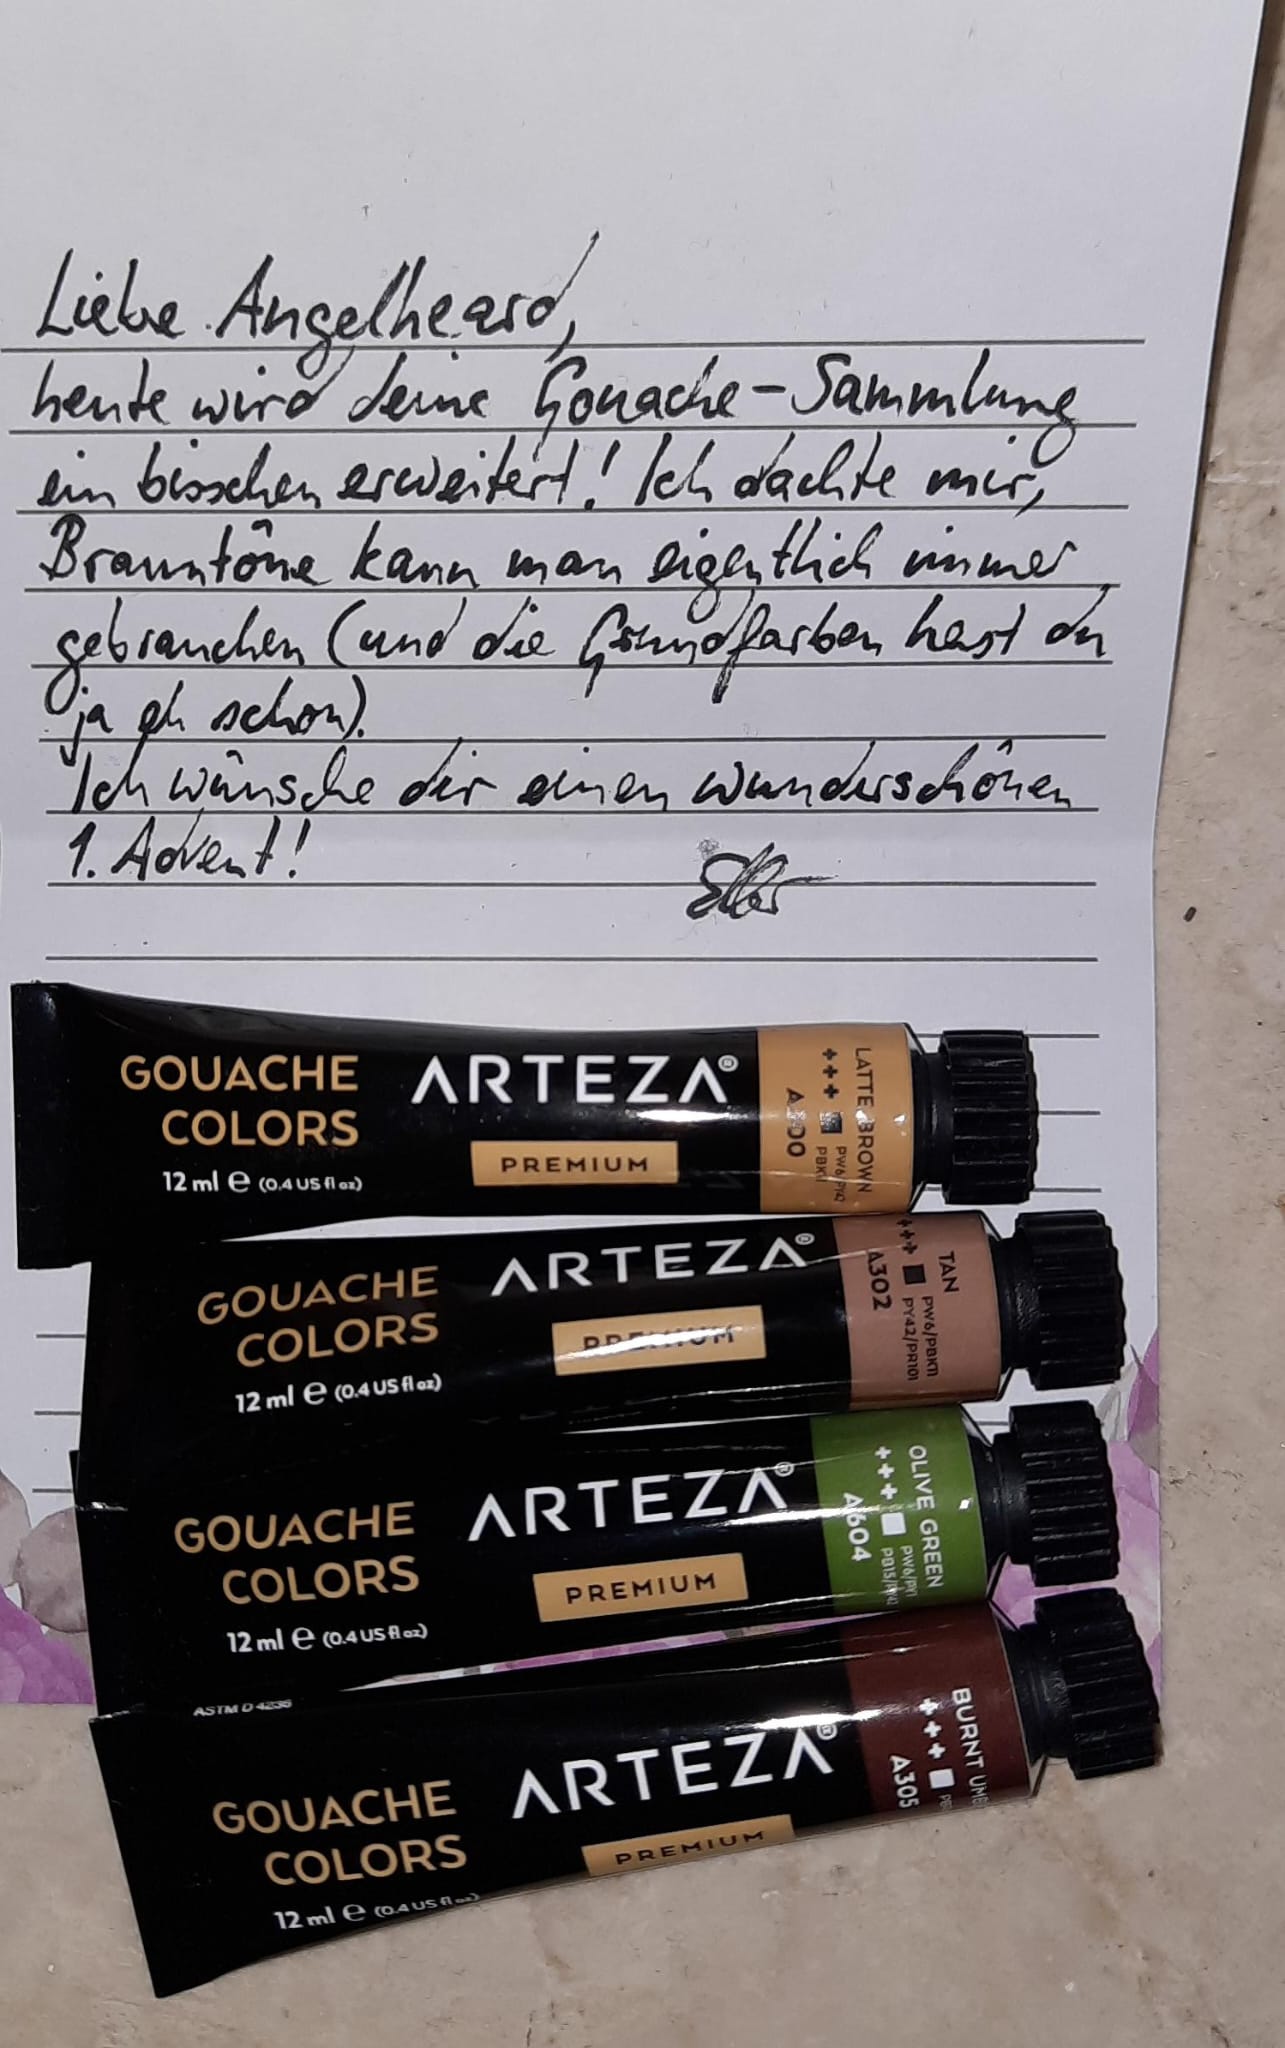 Liebe Angelheard,
heute wird deine Gouache-Sammlung
ein bisschen erweitert! Ich dachte mir,
Brauntöne kann man eigentlich immer
gebrauchen (und die Grundfarben hast du
ja eh schon).
Ich wünsche dir einen wunderschönen
1. Advent!
GOUACHE
COLORS
12 ml e (0.4 US fl oz)
ARTEZA®
PREMIUM
LATTE BROWN
+++
PW6/PY42
PBK11
GOUACHE
COLORS
12 ml e (0.4 US fl oz)
ARTEZA®
PREMIUM
TAN
+++
PW6/PBK11
PY42/PR101
A302
GOUACHE
COLORS
12 ml e (0.4 US fl oz)
ARTEZA®
PREMIUM
OLIVE GREEN
+++
PW6/PY1
PB15/PY42
A604
ASTM D 4236
GOUACHE
COLORS
12 ml e (0.4 US fl oz)
ARTEZA®
PREMIUM
BURNT UMB
+++
A305